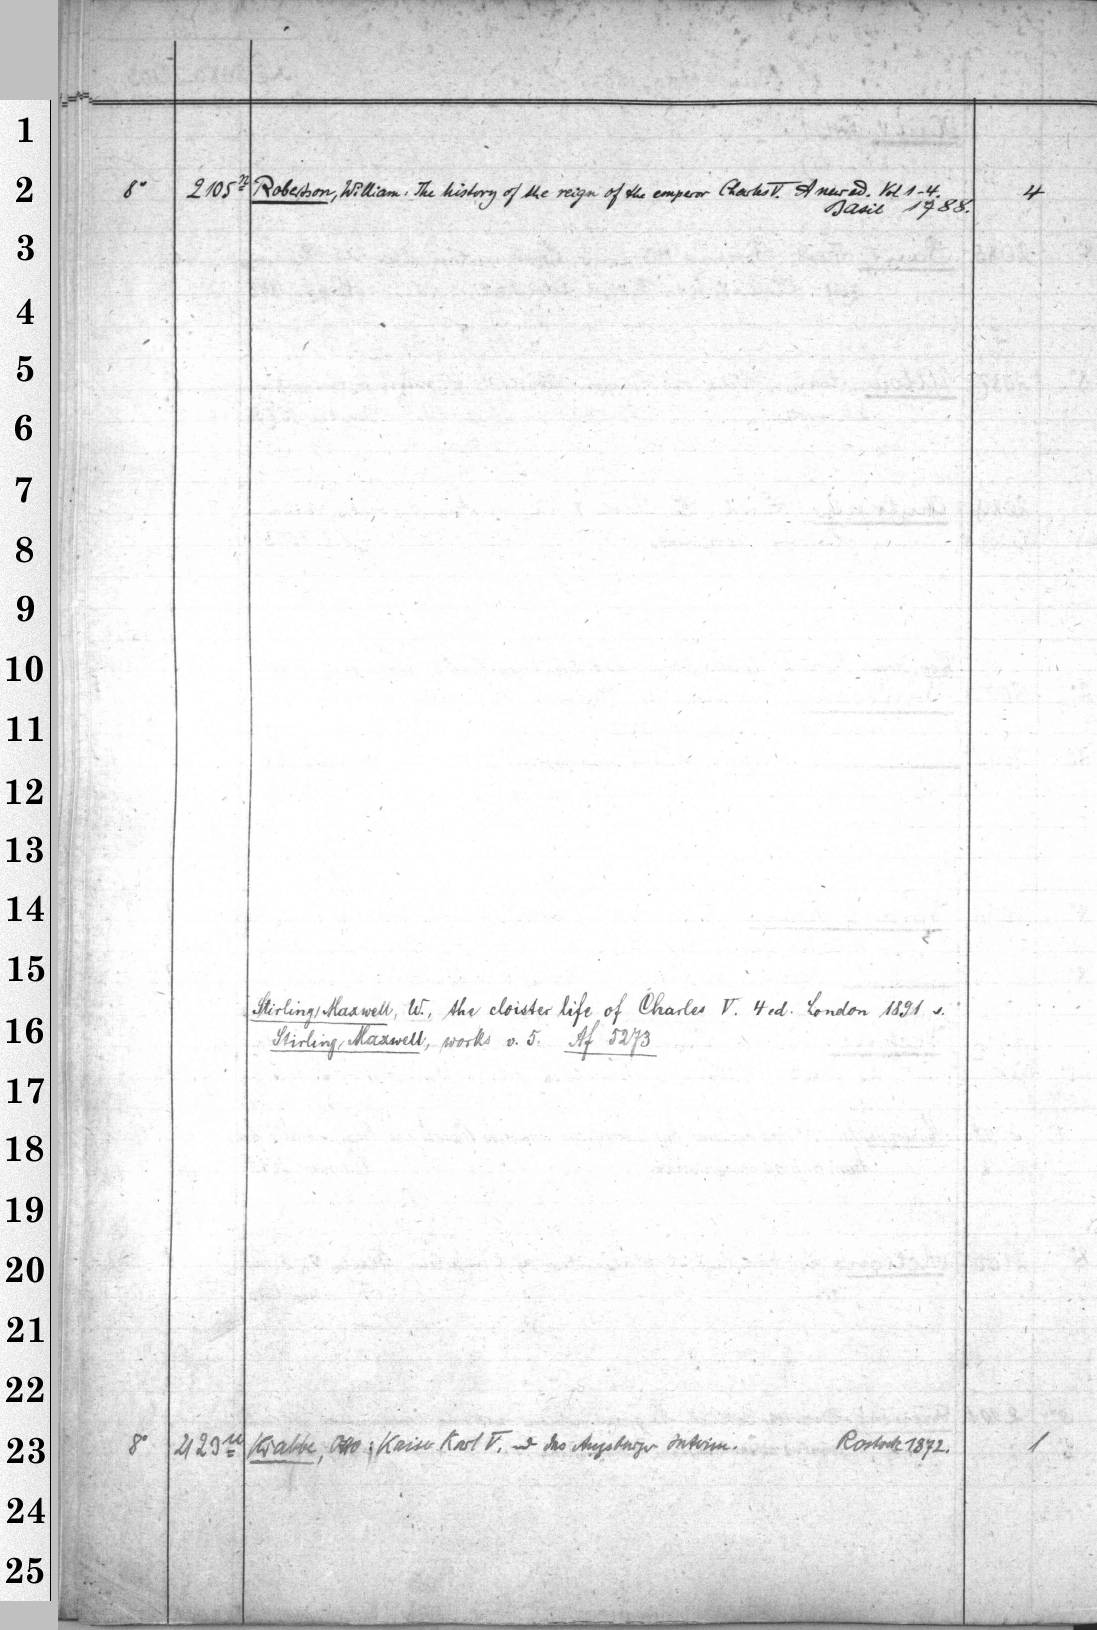 1
2
8° 2105ⁿ Robertson, William: The history of the reign of the emperor Charles V. A new ed. Vol 1-4. 4
Basil 1788.
3
4
5
6
7
8
9
10
11
12
13
14
15
Stirling, Maxwell, W., the cloister life of Charles V. 4 ed. London 1891 s.
16
Stirling, Maxwell, works v. 5. Af 5273
17
18
19
20
21
22
23
8° 2123ⁿ Krabbe, Otto: Kaiser Karl V. und das Augsburger Interim. Rostock 1872. 1
24
25